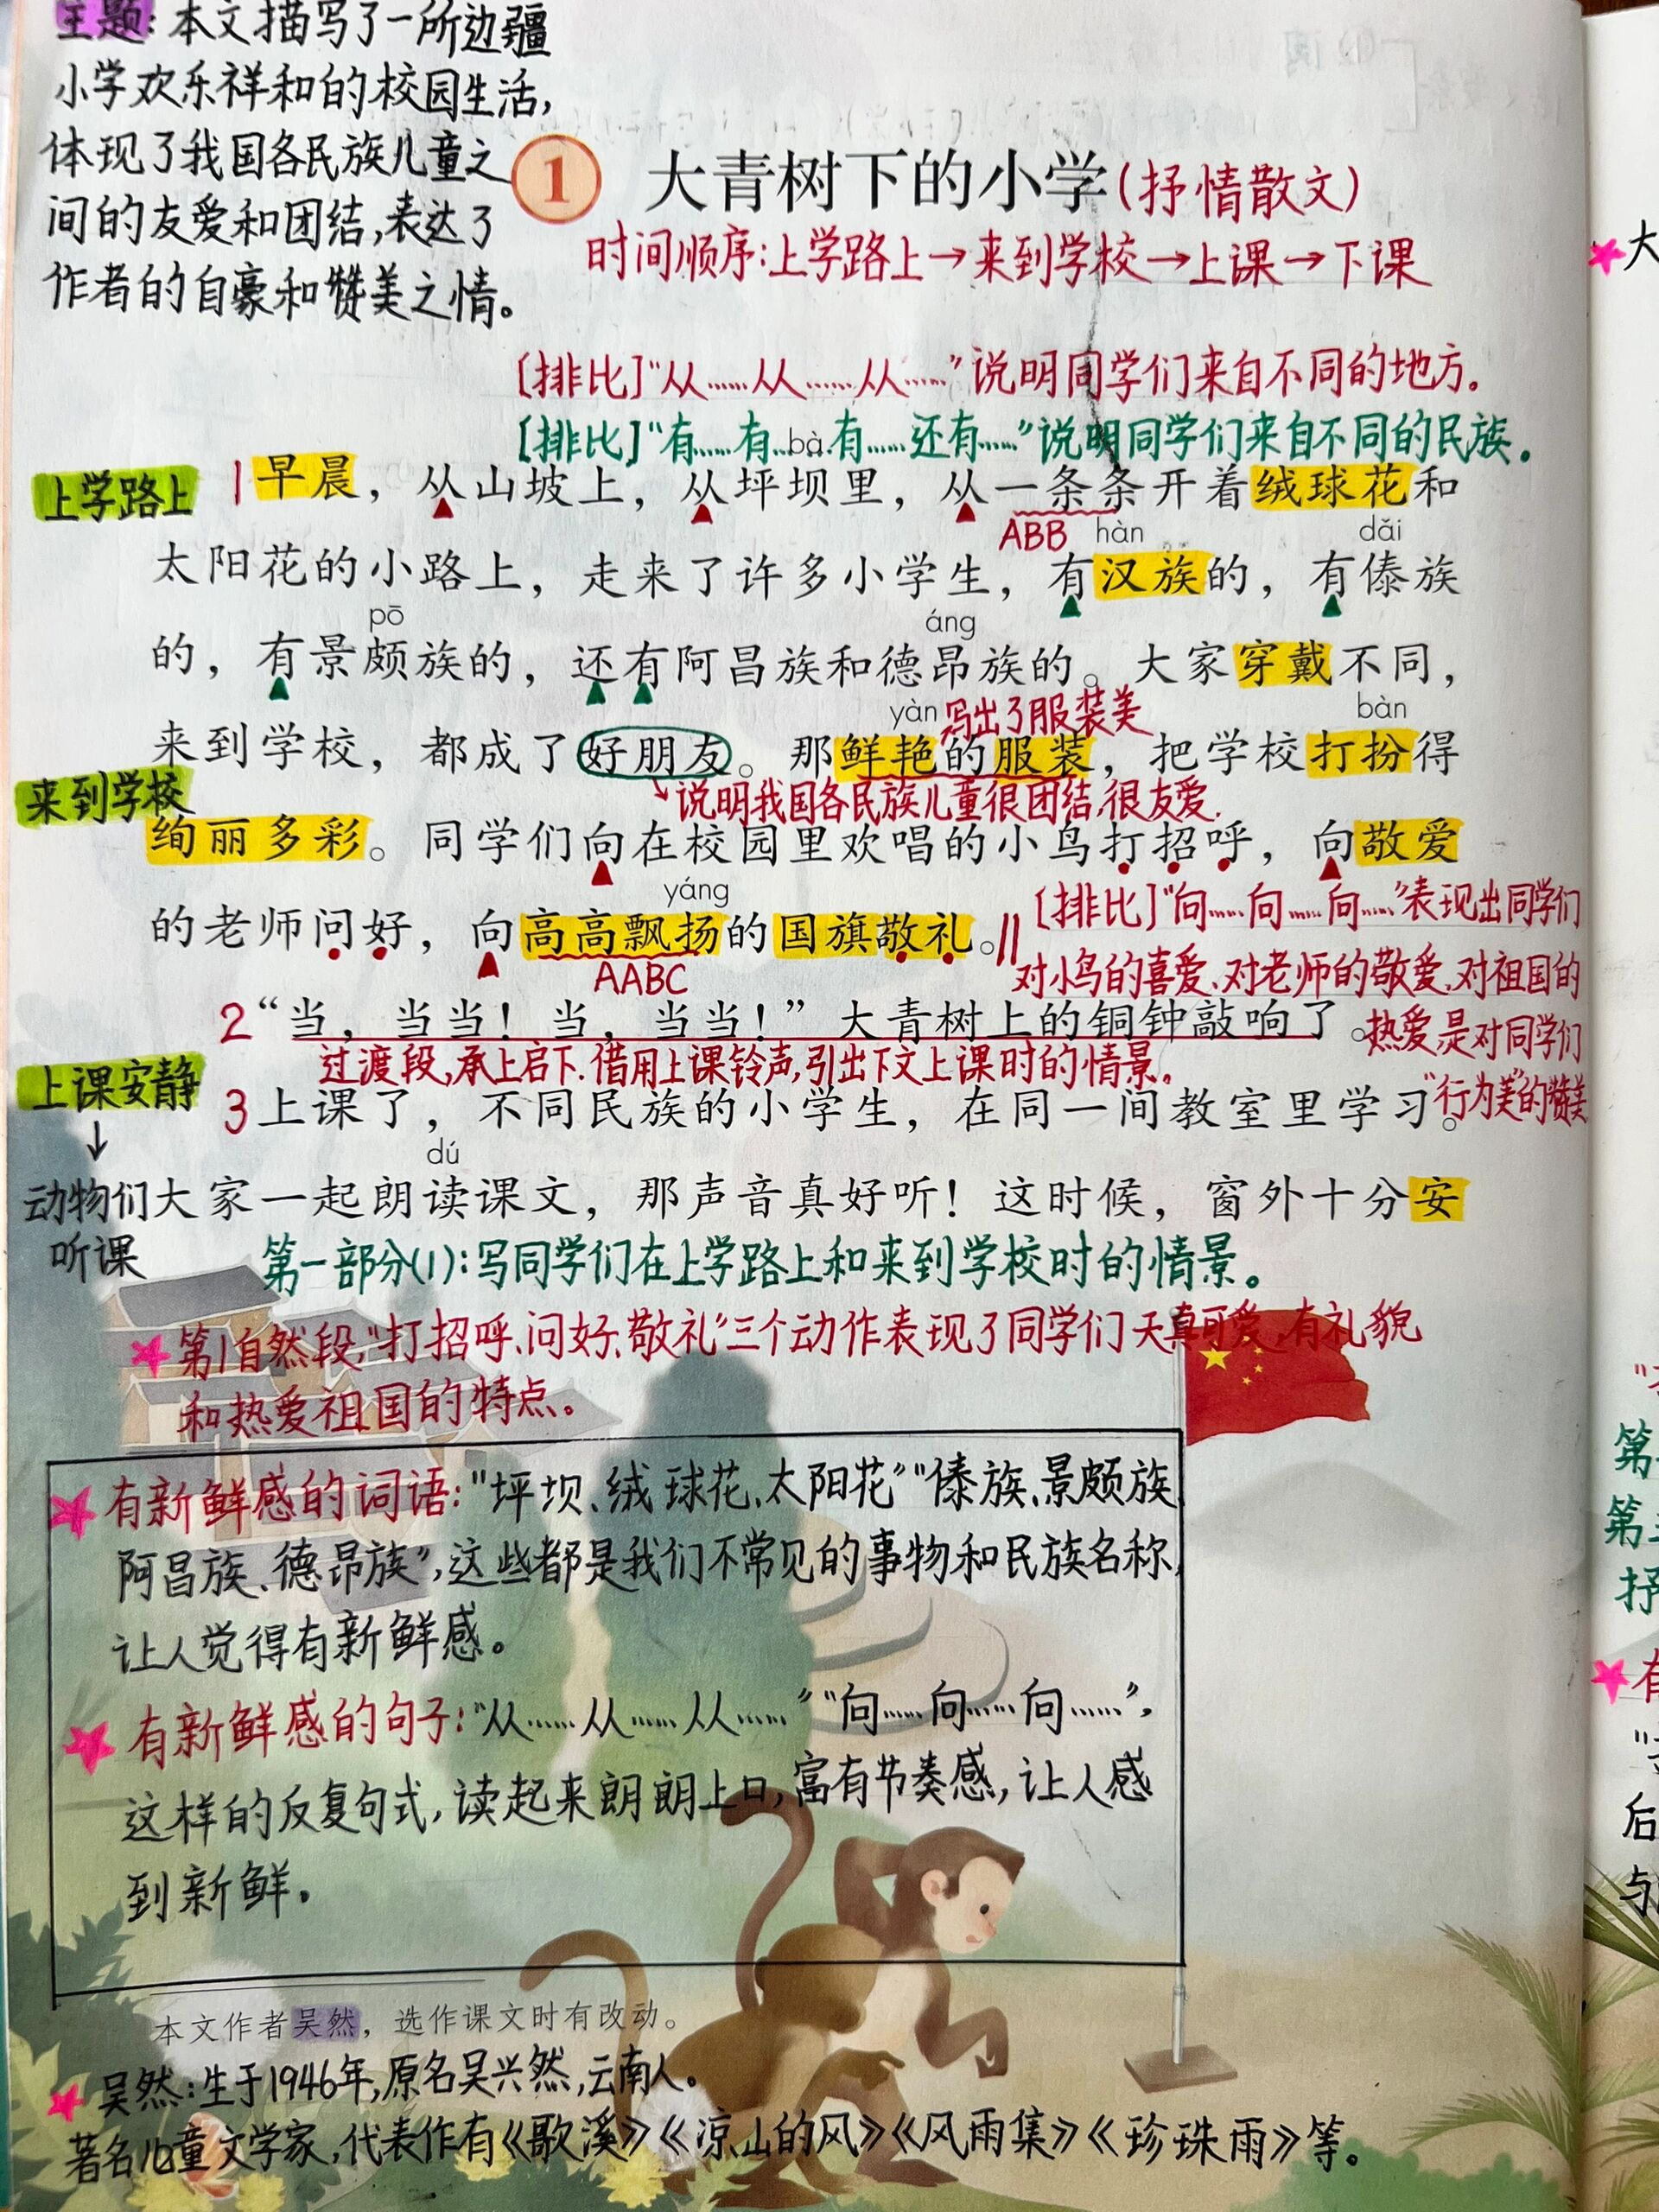 主题:本文描写了一所边疆
小学欢乐祥和的校园生活,
体现了我国各民族儿童之
间的友爱和团结,表达了
作者的自豪和赞美之情。
1 大青树下的小学(抒情散文)
时间顺序:上学路上→来到学校→上课→下课
[排比]“从……从……从……”说明同学们来自不同的地方。
[排比]“有……有……有……还有……”说明同学们来自不同的民族。
bà
上学路上
1早晨，从山坡上，从坪坝里，从一条条开着绒球花和
ABB hàn dǎi
太阳花的小路上，走来了许多小学生，有汉族的，有傣族
pō áng
的，有景颇族的，还有阿昌族和德昂族的。大家穿戴不同，
yàn 写出了服装美 bàn
来到学校，都成了好朋友。那鲜艳的服装，把学校打扮得
来到学校
说明我国各民族儿童很团结,很友爱.
绚丽多彩。同学们向在校园里欢唱的小鸟打招呼，向敬爱
yáng
的老师问好，向高高飘扬的国旗敬礼。
AABC
[排比]“向……向……向……”表现出同学们
对小鸟的喜爱、对老师的敬爱、对祖国的
热爱,是对同学们
“行为美”的赞美
2“当，当当！当，当当！”大青树上的铜钟敲响了。
过渡段,承上启下.借用上课铃声,引出下文上课时的情景。
上课安静
↓
动物们
听课
3上课了，不同民族的小学生，在同一间教室里学习。
dú
大家一起朗读课文，那声音真好听！这时候，窗外十分安
第一部分(1):写同学们在上学路上和来到学校时的情景。
第1自然段,“打招呼、问好、敬礼”三个动作表现了同学们天真可爱,有礼貌
和热爱祖国的特点。
有新鲜感的词语:“坪坝、绒球花、太阳花”“傣族、景颇族
阿昌族、德昂族”,这些都是我们不常见的事物和民族名称,
让人觉得有新鲜感。
有新鲜感的句子:“从……从……从……”“向……向……向……”,
这样的反复句式,读起来朗朗上口,富有节奏感,让人感
到新鲜.
本文作者吴然，选作课文时有改动。
吴然:生于1946年,原名吴兴然,云南人。
著名儿童文学家,代表作有《歌溪》《凉山的风》《风雨集》《珍珠雨》等。
大
第
第
抒
后
与